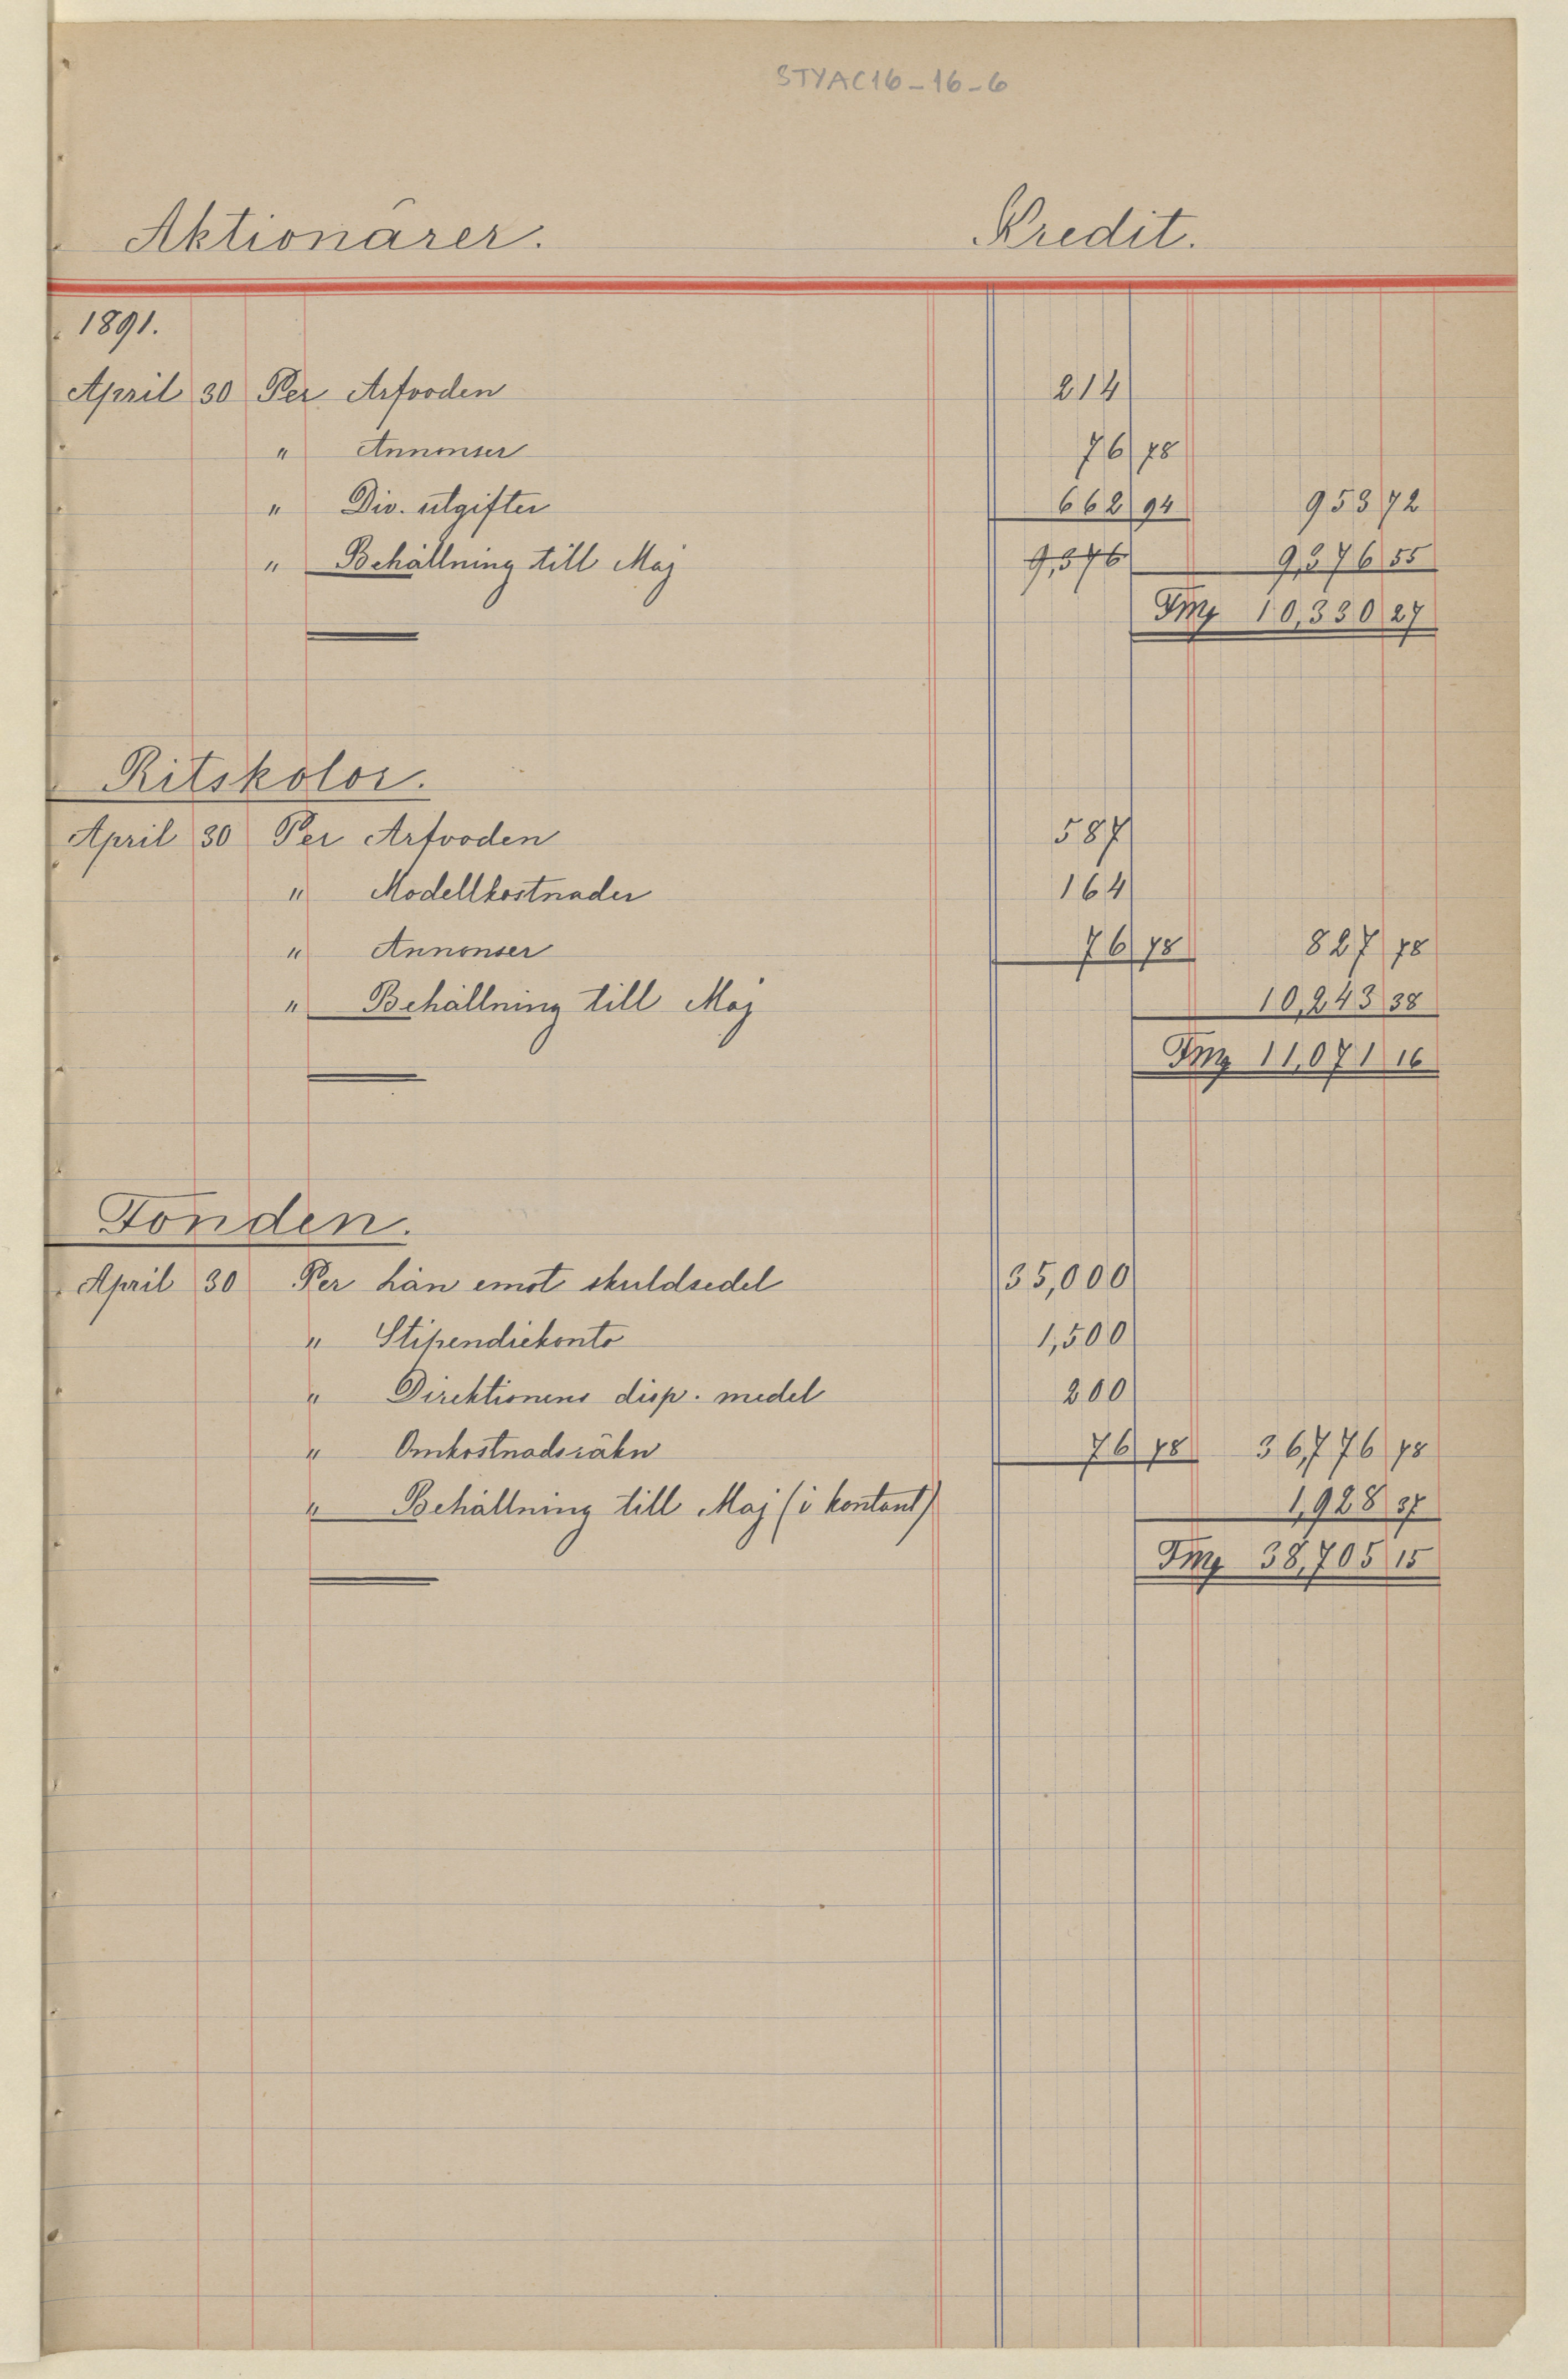 STYAC16-16-6
Aktionärer. Kredit.
1891.
April 30 Per Arfvoden 214
" Annonser 76 78
" Div. utgifter 662 94 953 72
" Behållning till Maj 9,376 9,376 55
Fmg 10,330 27
Ritskolor.
April 30 Per Arfvoden 587
" Modellkostnader 164
" Annonser 76 78 827 78
" Behållning till Maj 10,243 38
Fmg 11,071 16
Fonden.
April 30 Per Lån emot skuldsedel 35,000
" Stipendiekonto 1,500
" Direktionens disp. medel 200
" Omkostnadsräkn 76 78 36,776 78
" Behållning till Maj (i kontant) 1,928 37
Fmg 38,705 15